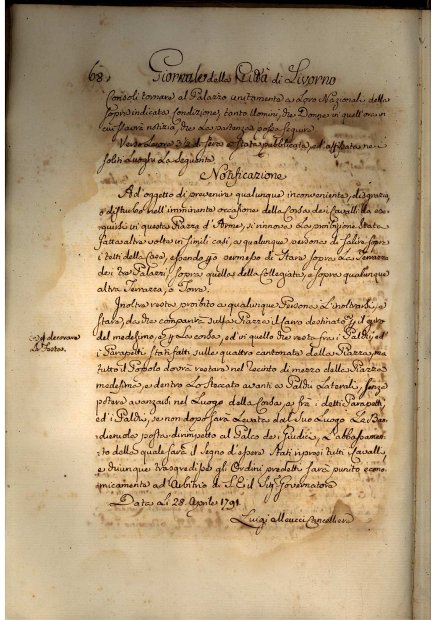 68, Giornale della Città di Livorno
Consoli tornare al Palazzo unitamente a Loro Nazionali della
sopra indicata Condizione, tanto Uomini, che Donne in quell'ora in
cui s'avrà notizia, che La partenza possa seguire
Verso Le ore 3½ di sera è Stata pubblicata, ed affissata nei
soliti Luoghi La Seguente
Notificazione
Ad oggetto di prevenire qualunque inconveniente, disgrazia
o disturbo nell'imminente occasione della Corsa dei Cavalli da
in questa Piazza d'Arme, si rinnova La proibizione Stata
fatta altre volte in simili casi, a qualunque persona di Salire sopra
i tetti delle Case, essendo permesso di Stare sopra La Terrazza
dei tre Palazzi, sopra quella della Collegiata, e sopra qualunque
altra Terrazza, o Torre.
Inoltre resta proibito a qualunque Persona L'inoltrarsi, e
Stare, da che comparirà sulla Piazza il Carro destinato il giro
del medesimo, e La corsa, ed in quello che resta fra i Palchi, ed
i Parapetti Stati fatti sulle quattro cantonate della Piazza, ma
tutto il Popolo dovrà restare nel Recinto di mezzo della Piazza
medesima, e dentro Lo Steccato avanti a Palchi Laterali, senza
potersi avanzare nel Luogo della Corsa, e fra i detti Parapetti
ed i Palchi, se non dopo sarà Levata dal suo Luogo La Ban-
dierola posta dirimpetto al Palco dei Giudici, L'abbassamen-
to della quale sarà il Segno d'essere Stati ripresi tutti i Cavalli
e chiunque trasgredisse gli Ordini predetti sarà punito econo-
micamente ad Arbitrio di S. E. il Governatore
Data Li 28. Aprile 1791.
Luigi Cancelliere
decorare
La Festa.